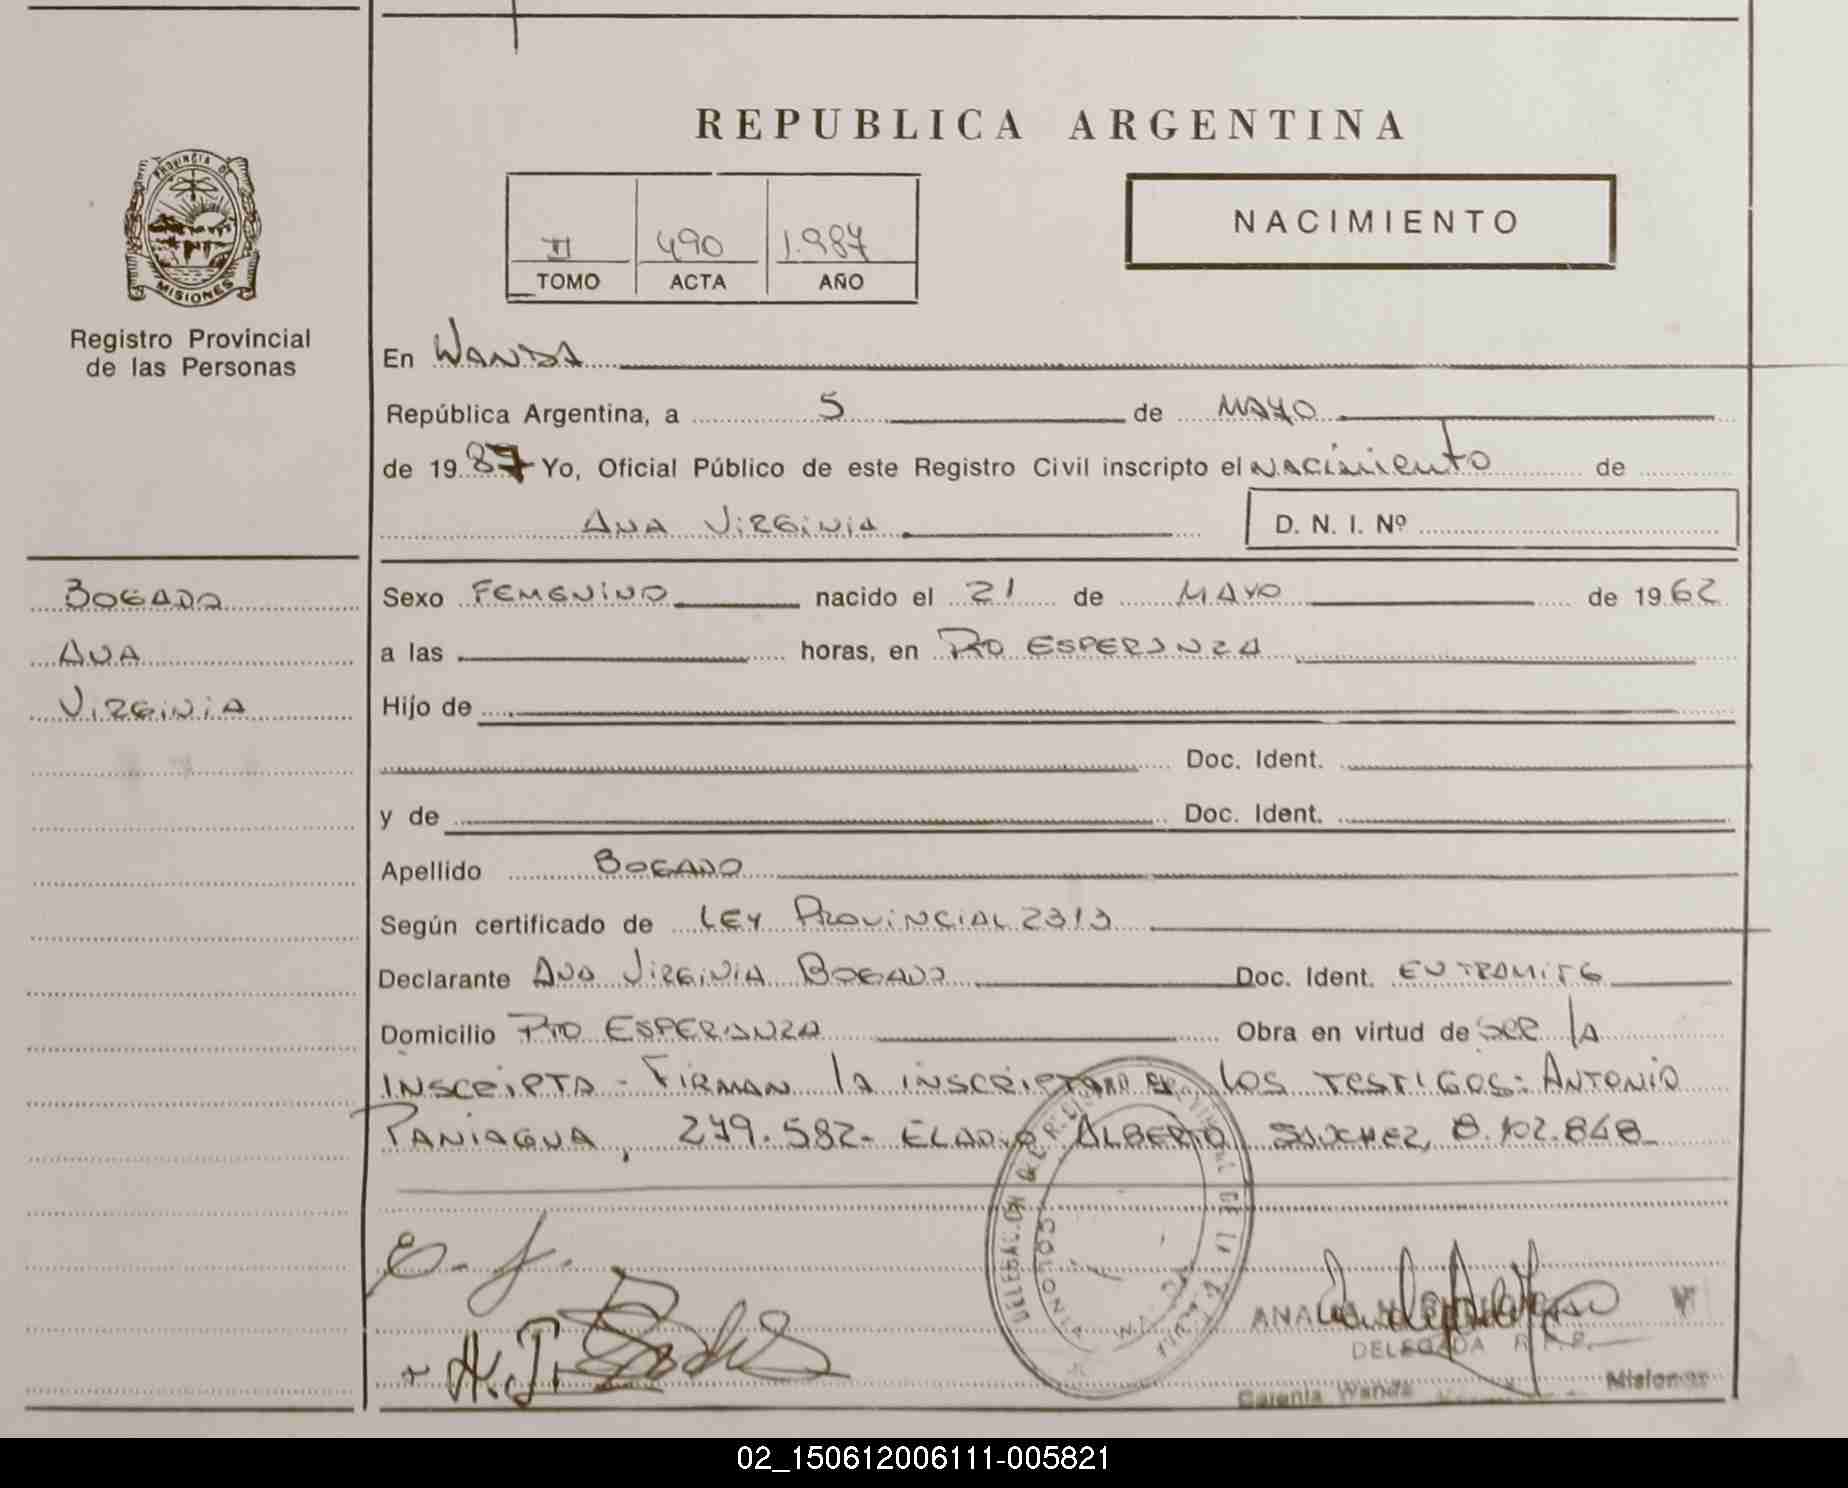 REPUBLICA ARGENTINA
PROVINCIA DE
MISIONES
Registro Provincial
de las Personas
II 490 1.987
TOMO ACTA AÑO
NACIMIENTO
En WANDA
República Argentina, a 5 de MAYO
de 1987 Yo, Oficial Público de este Registro Civil inscripto el NACIMIENTO de
ANA VIRGINIA D. N. I. Nº
BOGADO
ANA
VIRGINIA
Sexo FEMENINO nacido el 21 de MAYO de 1962
a las horas, en PTO ESPERANZA
Hijo de
Doc. Ident.
y de Doc. Ident.
Apellido BOGADO
Según certificado de LEY PROVINCIAL 2313
Declarante ANA VIRGINIA BOGADO Doc. Ident. EN TRAMITE
Domicilio PTO ESPERANZA Obra en virtud de SER LA
INSCRIPTA - FIRMAN LA INSCRIPTA LOS TESTIGOS: ANTONIO
PANIAGUA, 279.582- ELADIO ALBERTO SANCHEZ, 8.102.848
DELEGACION DEL DE LA
COLONIA
DELEGADA R.P.P.
Wanda Misiones
02_150612006111-005821